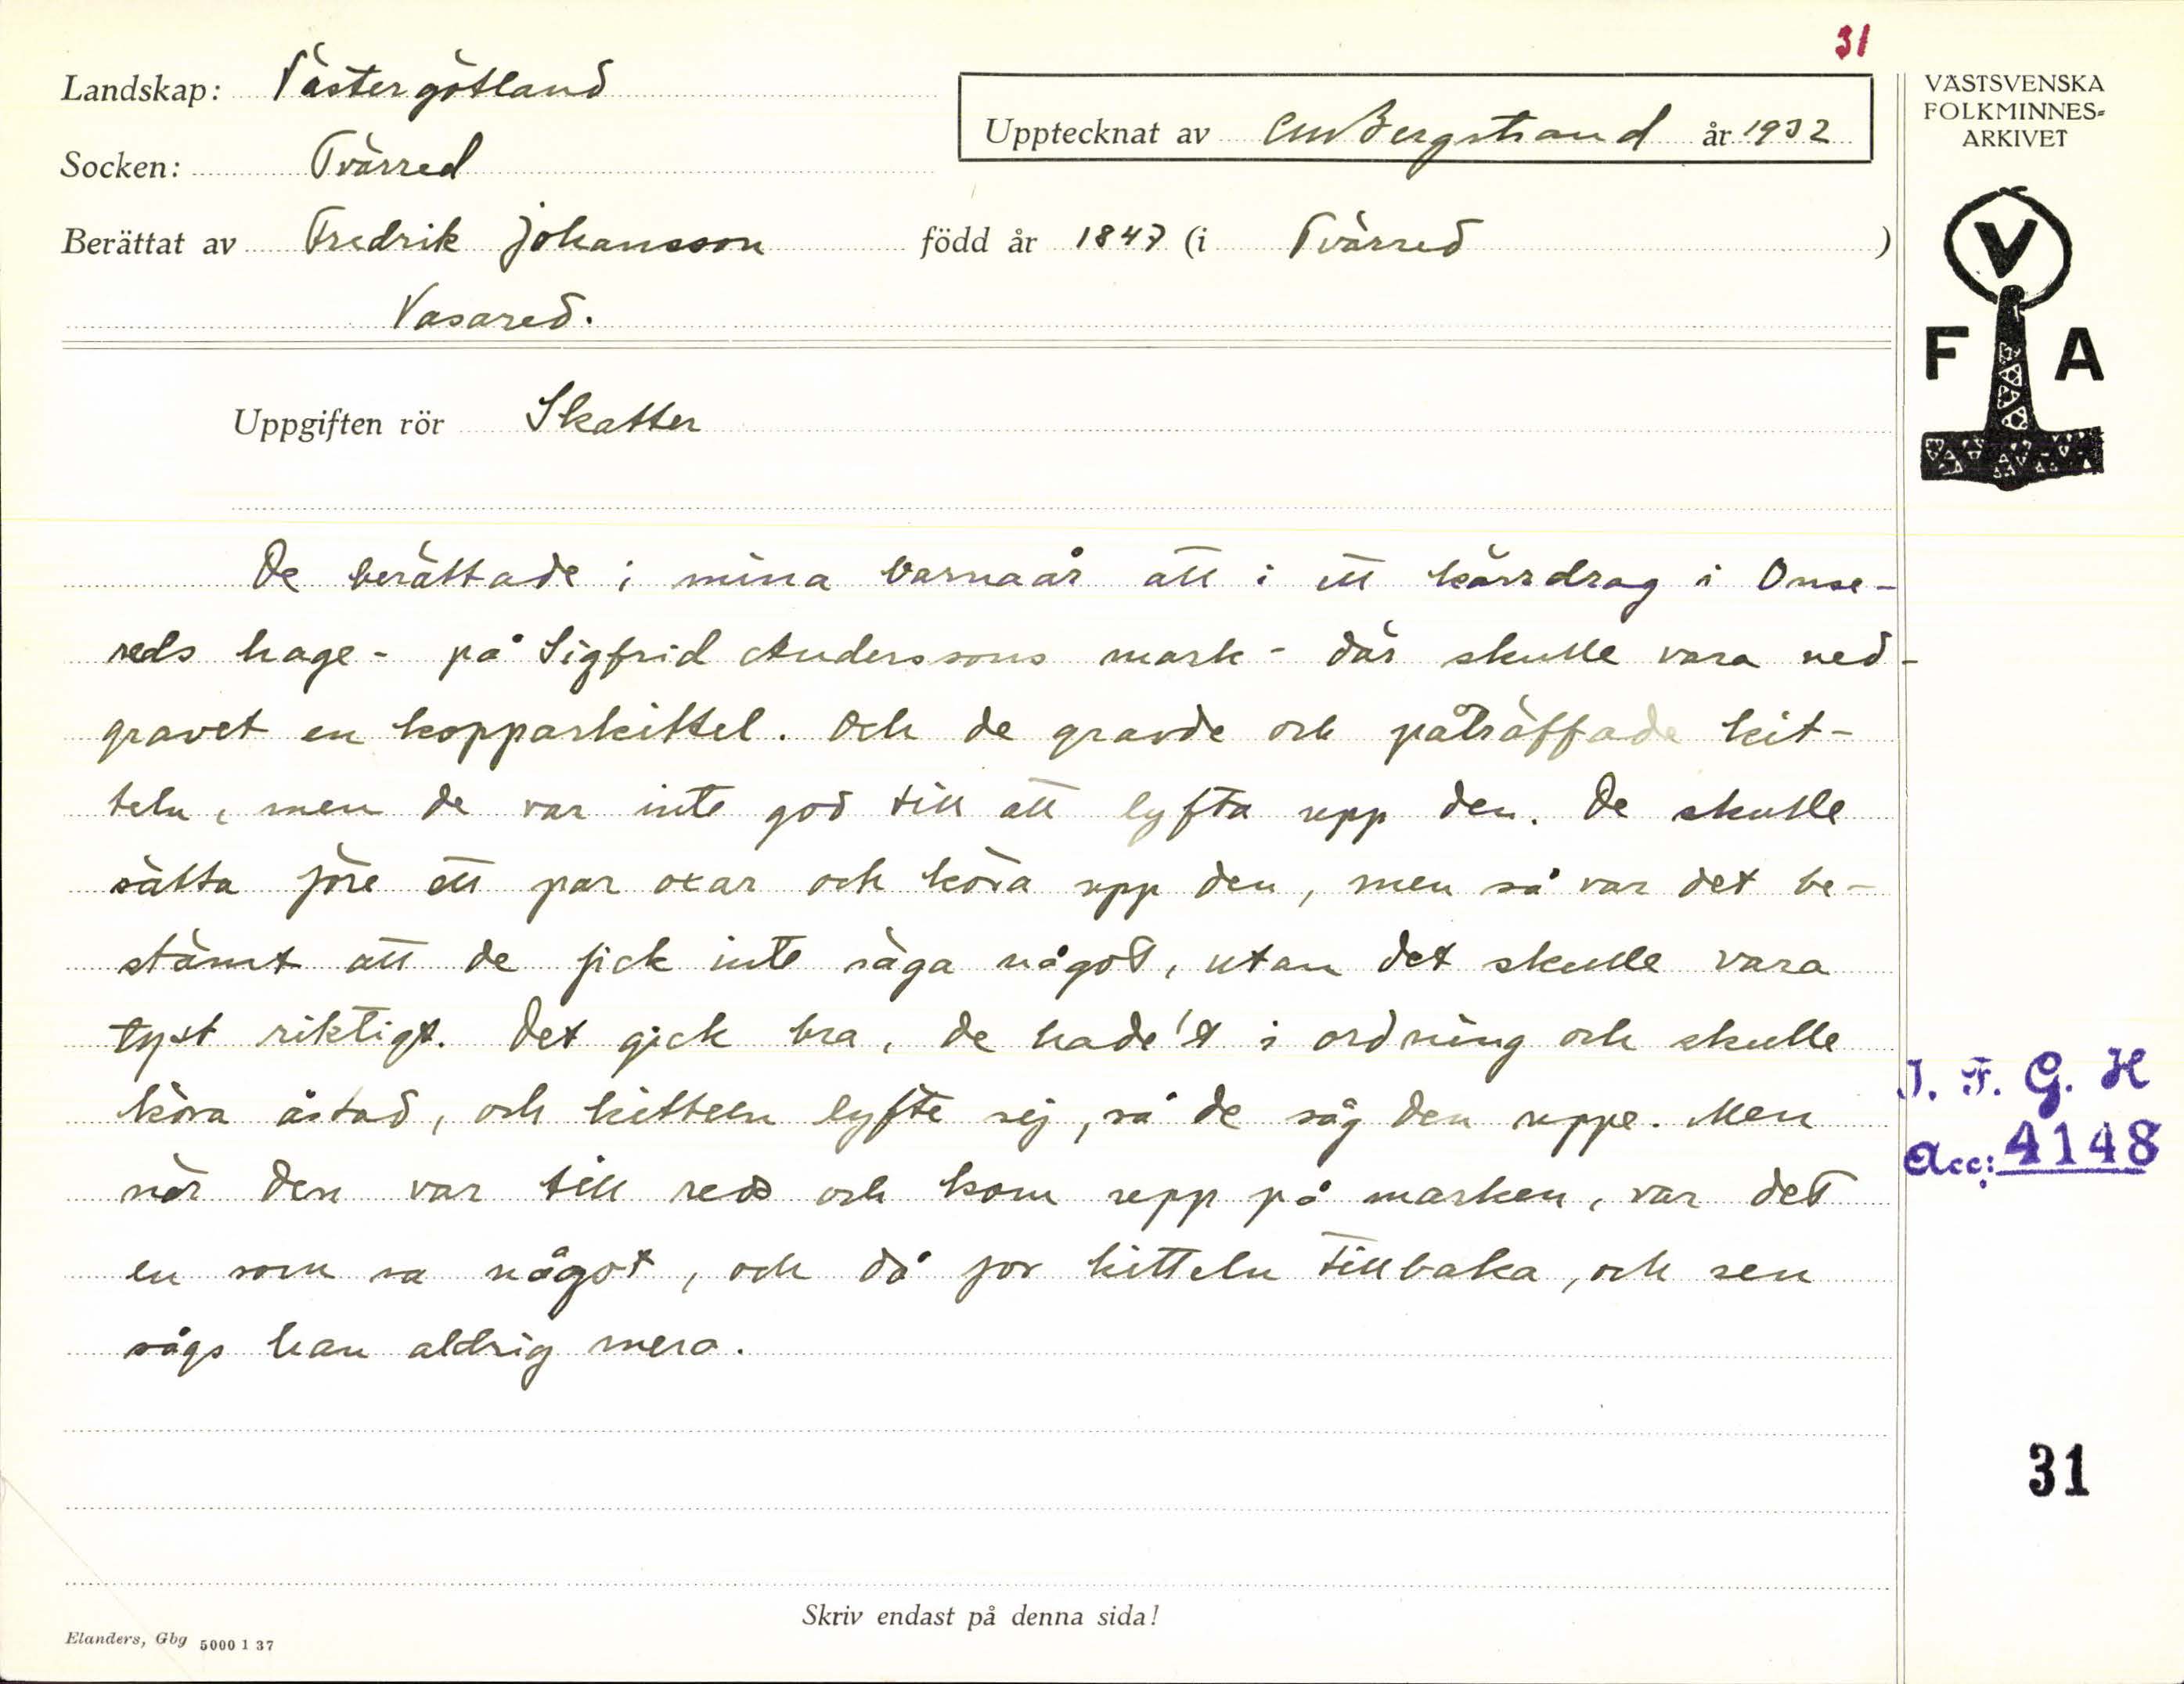 31
Landskap: Västergötland
Upptecknat av CM Bergstrand år 1932
Socken: Tvärred
Berättat av Fredrik Johansson född år 1847 (i Tvärred )
Vasared.
Uppgiften rör Skatter
De berättade i mina barnaår att i ett kärrdrag i Onse-
reds hage - på Sigfrid Anderssons mark - där skulle vara ned-
gravet en kopparkittel. Och de gravde och påträffade kit-
teln, men de var inte god till att lyfta upp den. De skulle
sätta före ett par oxar och köra upp den, men så var det be-
stämt att de fick inte säga något, utan det skulle vara
tyst riktigt. Det gick bra, de hade't i ordning och skulle
köra åstad, och kitteln lyfte sej, så de såg den uppe. Men
när den var till reds och kom upp på marken, var det
en som sa något, och då for kitteln tillbaka, och sen
sågs han aldrig mera.
Skriv endast på denna sida!
Elanders, Gbg 5000 1 37
VÄSTSVENSKA
FOLKMINNES-
ARKIVET
V
F A
I. F. G. H
Acc: 4148
31